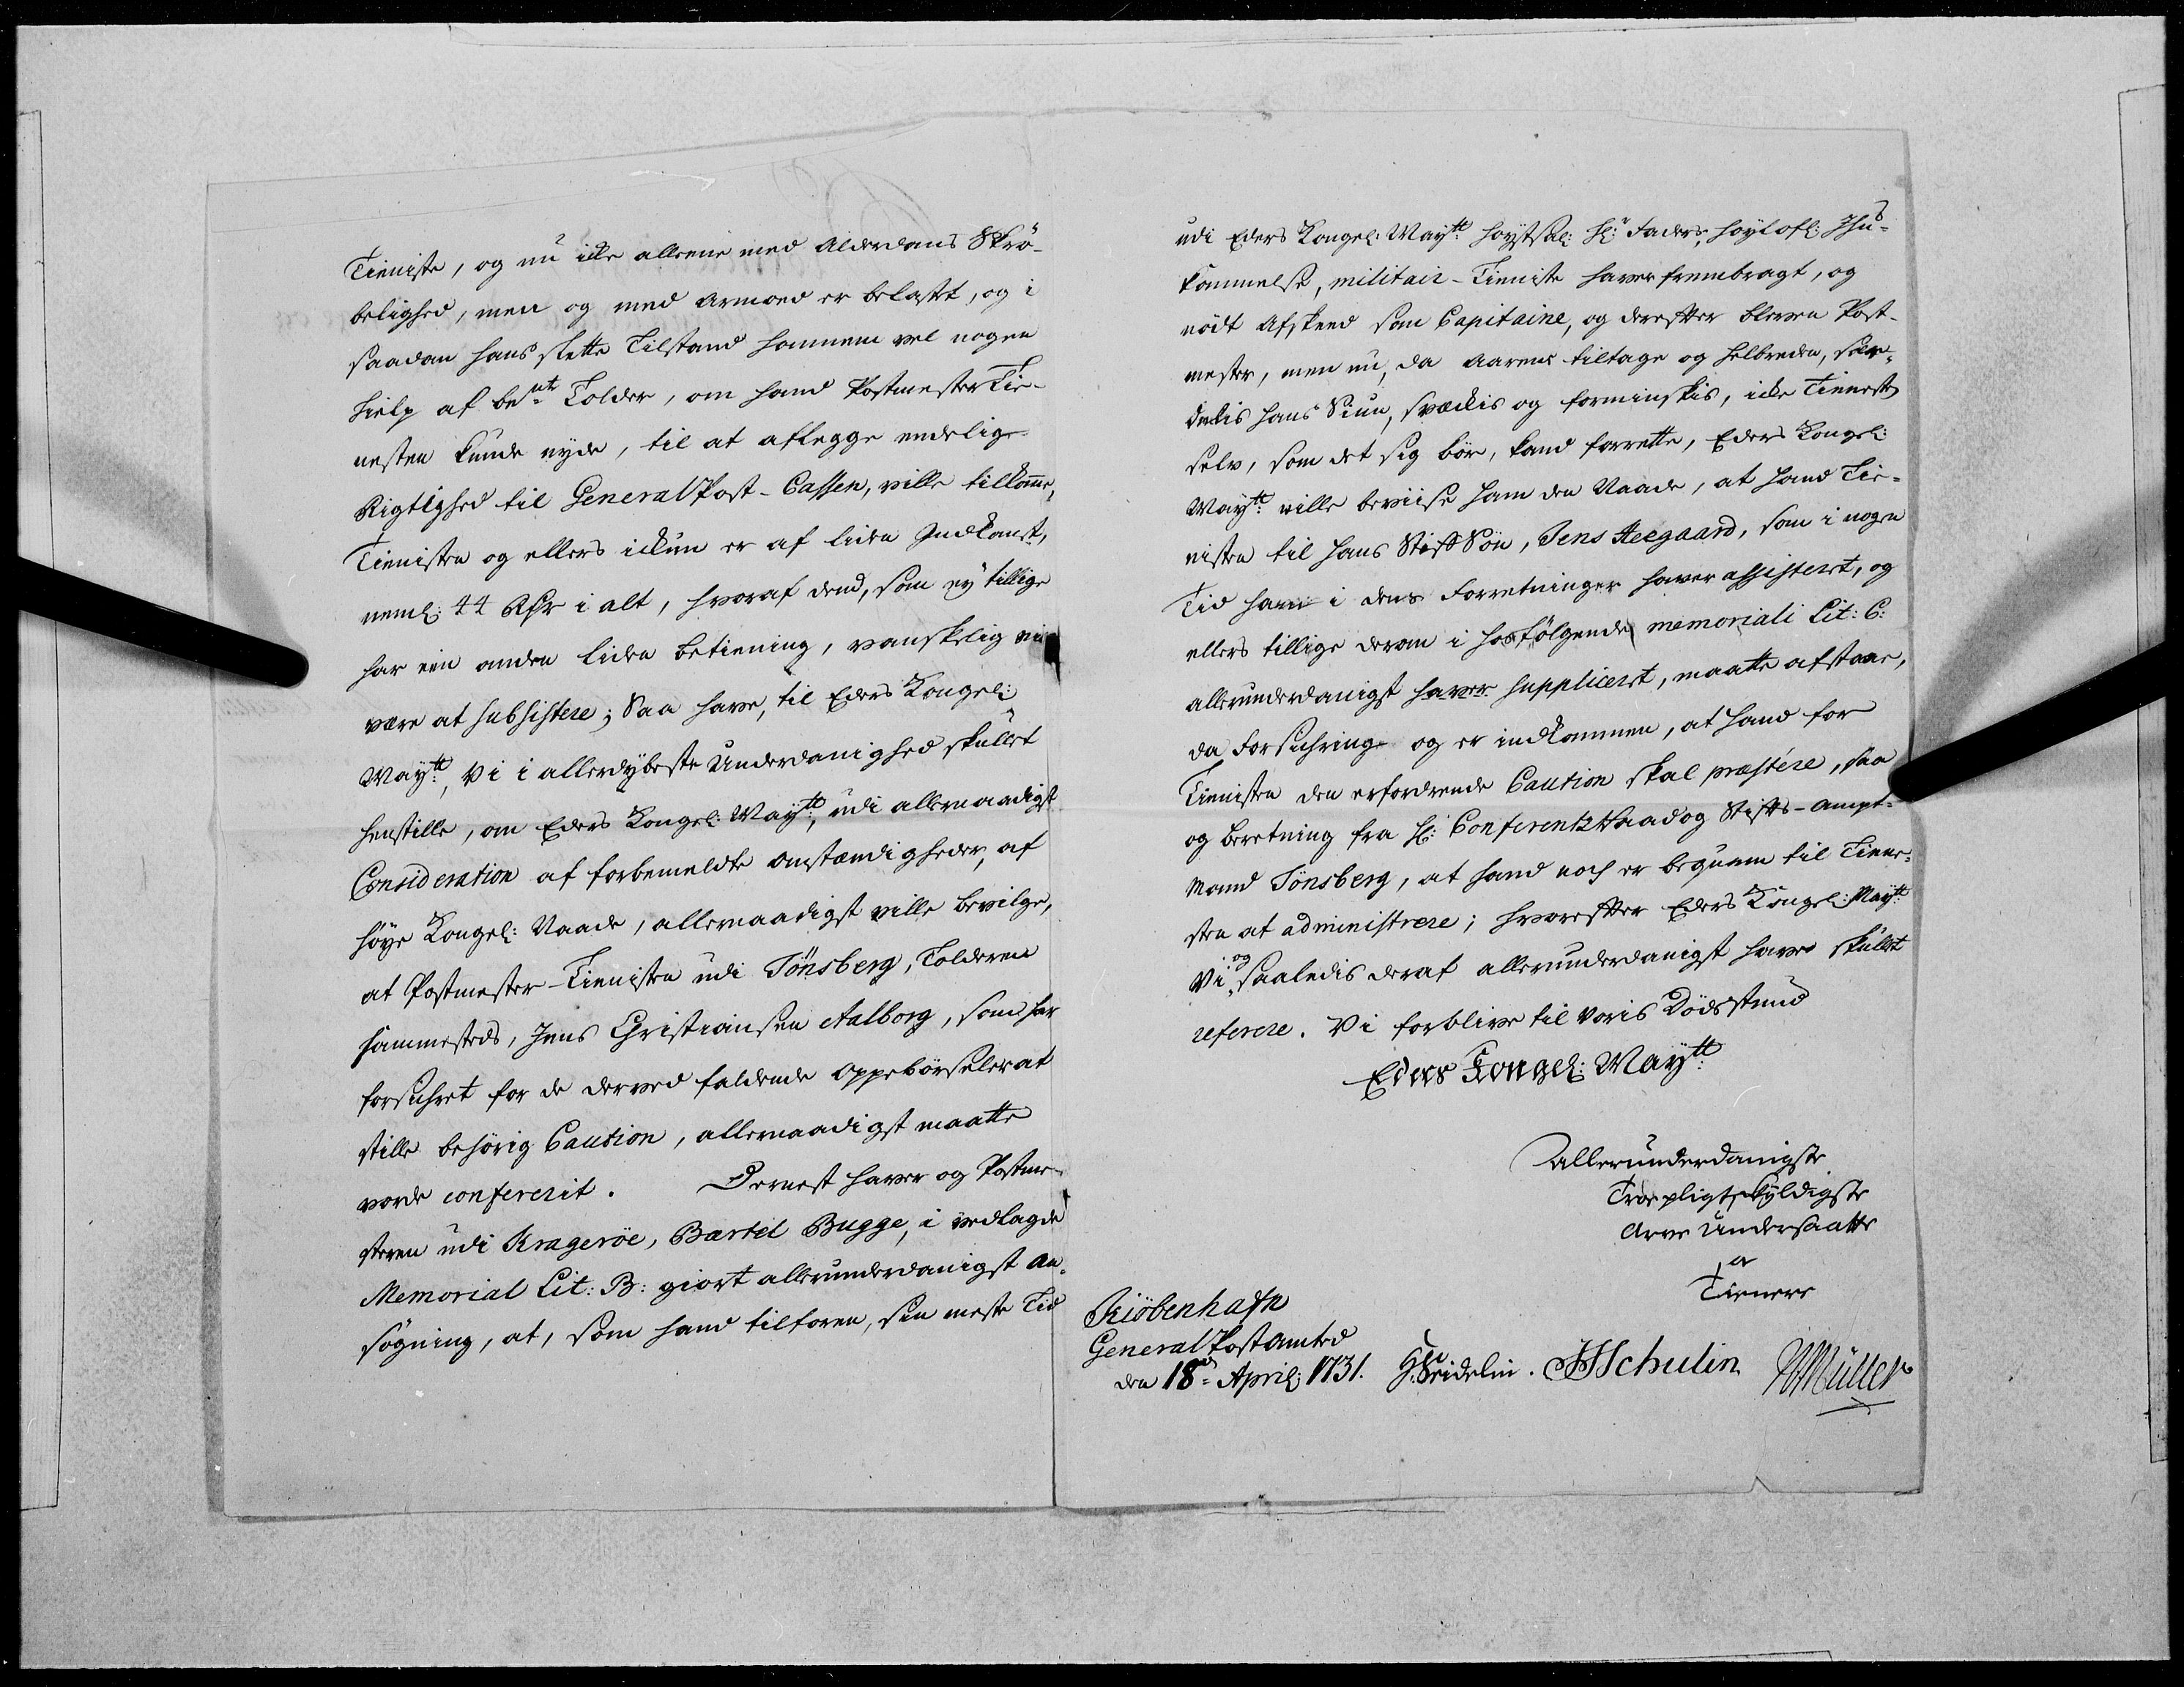 Tieniste, og nu icke alleene med Alderdoms Skrö-
belighed, men og med Armoed er belastet, og i
saadan hans slette Tilstand hannem vel nogen
hielp af bente Tolder, om hand Postmester Tie-
nesten kunde nyde, til at aflegge endelige
Rigtighed til General Post-Cassen, ville tilkomme,
Tienisten og ellers ickun er af liden Indkomst,
neml: 44 Rdr i alt, hvoraf dend, som ey tillige
har een anden liden betiening, vanskelig vil
være at subsistere; Saa have, til Eders Kongel:
Maytt:, Vi i allerdybeste Underdanighed skullet
henstille, om Eders Kongel: Maytt:, udi allernaadigst
Consideration af forbemeldte omstændigheder, af
høye Kongel: Naade, allernaadigst ville bevilge,
at Postmester-Tienisten udi Tönsberg, Tolderen
sammesteds, Jens Christiansen Aalborg, som har
forsichret for de derved faldende oppebörseler at
stille behörig Caution, allernaadigst maatte
vorde confererit. Dernest haver og Postme-
steren udi Kragerøe, Bartel Bugge, i vedlagde
Memorial Lit: B: giort allerunderdanigst An-
søgning, at, som hand tilforen, sin meste Tid
udi Eders Kongel: Maytt: høystsal: Hr: Faders, høylofl: Ihu-
kommelse, militair-Tieniste haver frembragt, og
nödt Afskeed som Capitaine, og derefter bleven Post-
mester, men nu, da Aarene tiltage og helbreden, sær-
delis hans Siun, svæckis og forminskis, icke Tieneste
selv, som det sig bör, kand forrette, Eders Kongel:
Maytt: ville beviise ham den Naade, at hand Tie-
nisten til hans Stif Sön, Jens Heegaard, som i nogen
Tid ham i dens Forretninger haver assisteret, og
ellers tillige derom i hosfölgende memoriali Lit: C:
allerunderdanigst haver suppliceret, maatte afstaae,
da Forsichring og er indkommen, at hand for
Tienisten den erfordrende Caution skal præstére, saa
og beretning fra Hr: Conferentz Raad og Stifts-Ampt-
mand Tönsberg, at hand noch er beqvem til Tiene-
sten at administrere; hvorefter Eders Kongel: Maytt:
Vi og saaledis deraf allerunderdanigst have skullet
referere. Vi forblive til voris Dödsstund
Eders Kongel: Maytt:
Allerunderdanigste
Troepligtskyldigste
Arve Undersaatte
og
Tienere
Kiöbenhafn
General Postamted
den 18de April: 1731. H: Seidelin. JSSchulin Müller